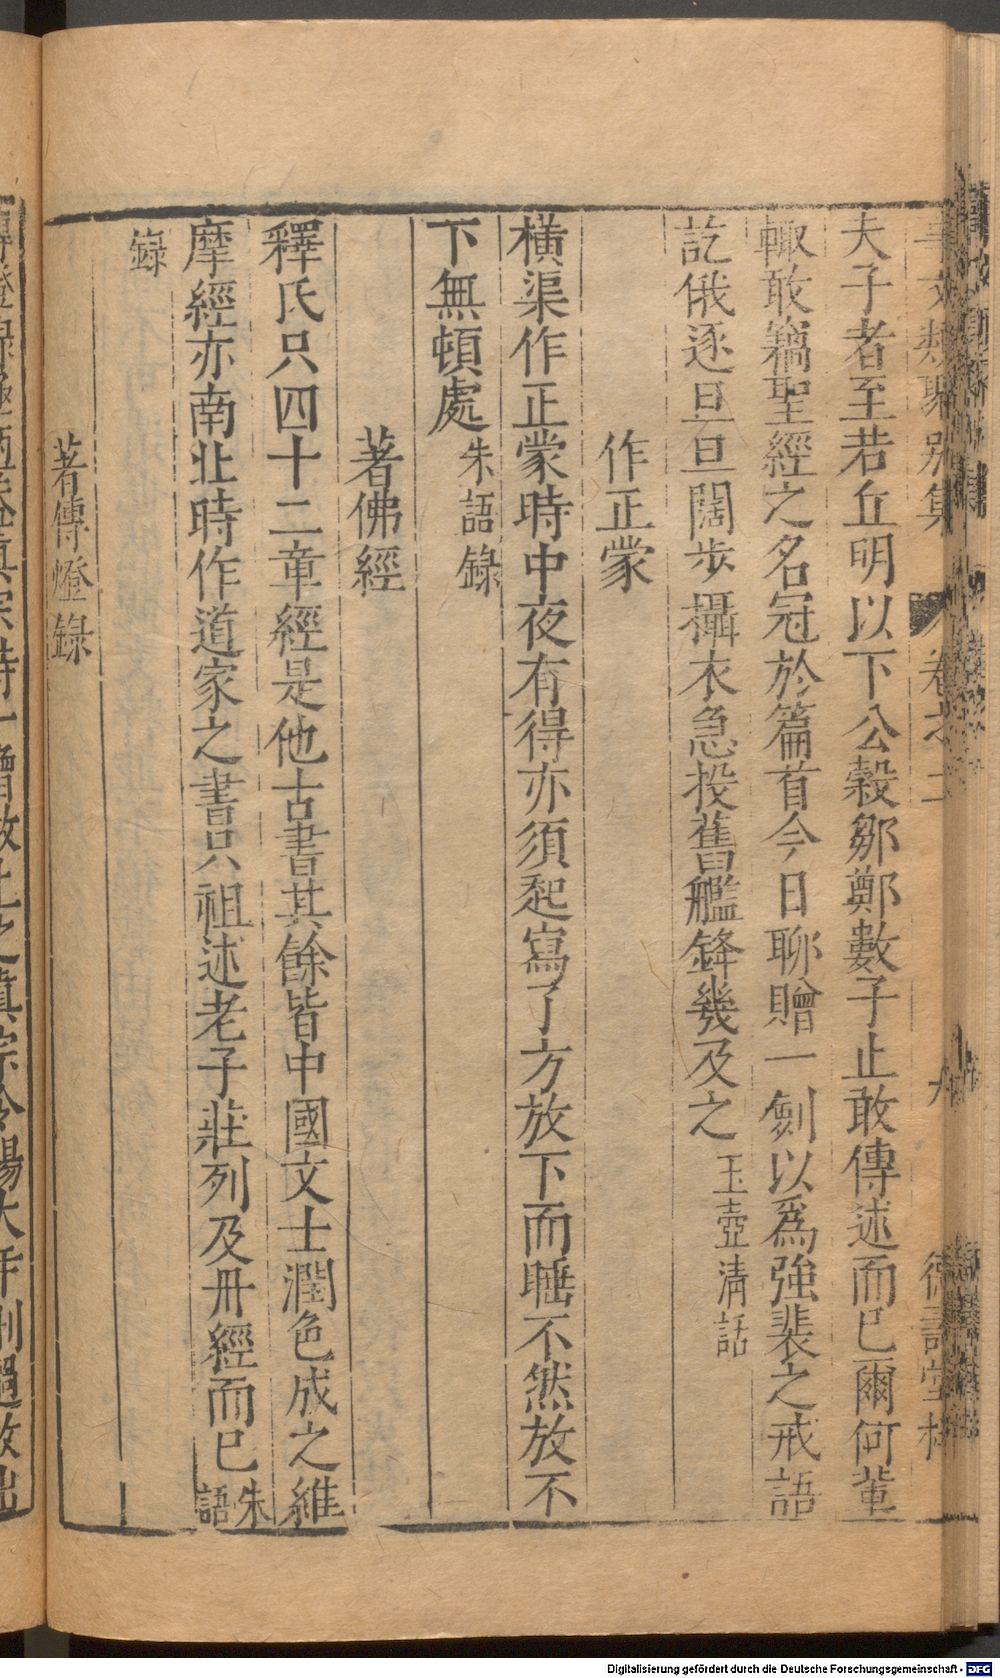 事文類聚別集 卷之二 九 德壽堂梓
夫子者至若丘明以下公穀鄒鄭數子止敢傳述而已爾何輩
輙敢竊聖經之名冠於篇首今日聊贈一劍以爲強裴之戒語
訖俄逐旦旦闊步攝衣急投舊艦鋒幾及之 玉壺清話
作正蒙
橫渠作正蒙時中夜有得亦須起寫了方放下而睡不然放不
下無頓處 朱語錄
著佛經
釋氏只四十二章經是他古書其餘皆中國文士潤色成之維
摩經亦南北時作道家之書只祖述老子莊列及丹經而已 朱語
錄
著傳燈錄
Digitalisierung gefördert durch die Deutsche Forschungsgemeinschaft - DFG